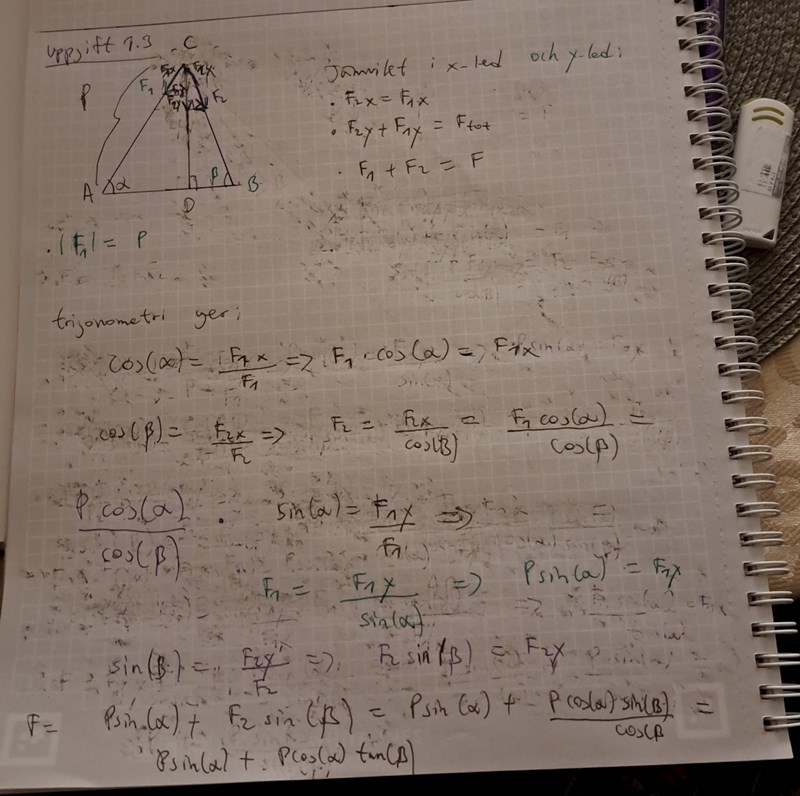 uppgift 1.3
C
P F₁ F₂
A α β B
D
jämvikt i x-led och y-led:
· F₂x = F₁x
· F₂y + F₁y = Ftot
· F₁ + F₂ = F
· |F₁| = P
trigonometri ger:
cos(α) = F₁x / F₁ => F₁ · cos(α) => F₁x
cos(β) = F₂x / F₂ => F₂ = F₂x / cos(β) = F₁ cos(α) / cos(β) =
P cos(α) / cos(β) : sin(α) = F₁y / F₁ =>
F₁ = F₁y / sin(α) => P sin(α) = F₁y
sin(β) = F₂y / F₂ => F₂ sin(β) = F₂y
F = P sin(α) + F₂ sin(β) = P sin(α) + P cos(α) sin(β) / cos(β =
P sin(α) + P cos(α) tan(β)